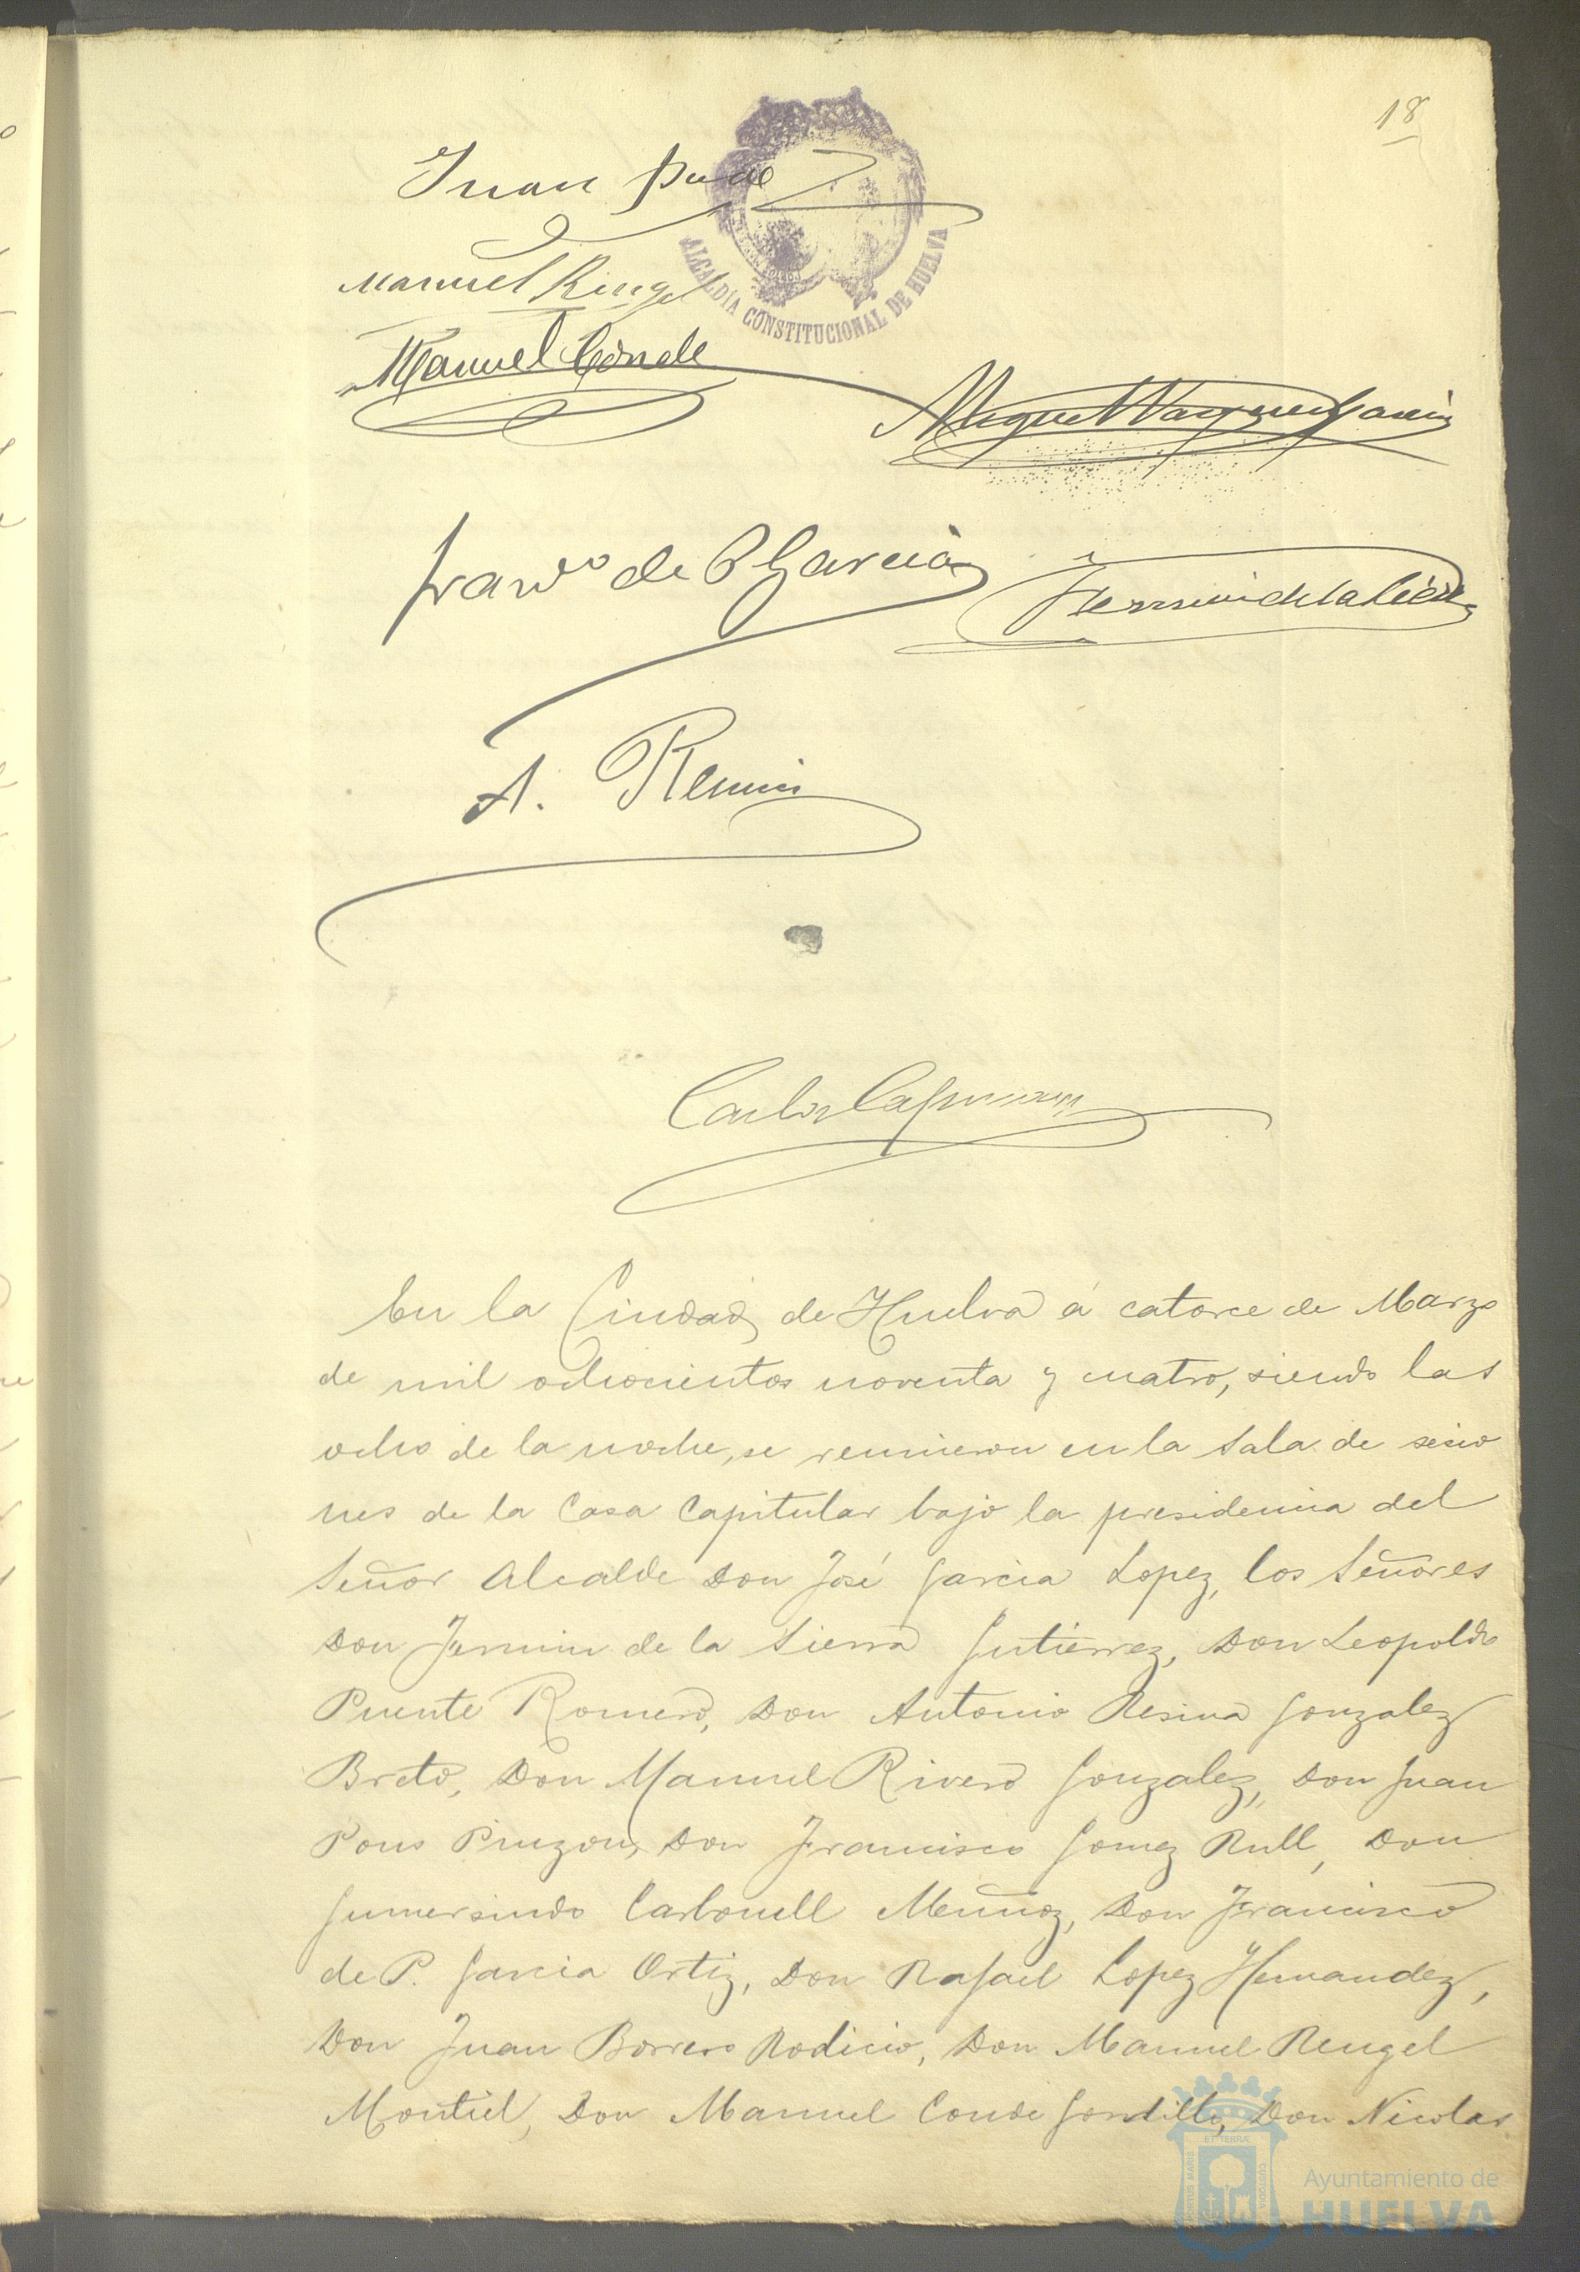 18
Juan
ALCALDÍA CONSTITUCIONAL DE HUELVA
Manuel Rengel
Manuel Conde
Miguel Vazquez Garcia
Franco de P Garcia
Fermin de la Sierra
A. Resina
Carlos
En la Ciudad de Huelva á catorce de Marzo
de mil ochocientos noventa y cuatro, siendo las
ocho de la noche, se reunieron en la Sala de sesio
nes de la Casa Capitular bajo la presidencia del
Señor Alcalde Don José Garcia Lopez, los Señores
Don Fermin de la Sierra Gutierrez, Don Leopoldo
Puente Romero, Don Antonio Resina Gonzalez
Breto, Don Manuel Rivero Gonzalez, Don Juan
Pons Pinzon, Don Francisco Gomez Rull, Don
Gumersindo Carbonell Muñoz, Don Francisco
de P. Garcia Ortiz, Don Rafael Lopez Hernandez,
Don Juan Borrero Rodicio, Don Manuel Rengel
Montiel, Don Manuel Conde Gordillo, Don Nicolas
PORTUS MARIS ET TERRÆ CUSTODIA
Ayuntamiento de
HUELVA